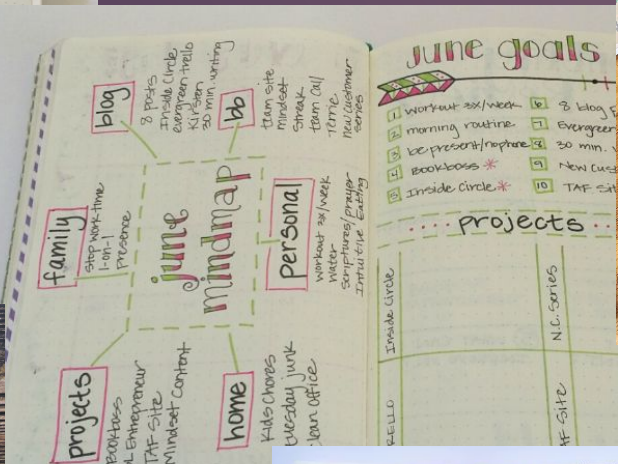 june
mindmap
blog
8 posts
Inside Circle
evergreen trello
Kirsten
30 min. writing
bb
team site
mindset
streak
team call
Terrie
new customer
series
family
stop work time
1-on-1
presence
personal
workout 3x/week
water
scriptures/prayer
Intuitive Eating
projects
Bookboss
Entrepreneur
TAF Site
Mindset Content
home
Kids Chores
tuesday junk
clean office
june goals
1 workout 3x/week
2 morning routine
3 be present/no phone
4 Bookboss *
5 Inside Circle *
6 8 blog
7 Evergreen
8 30 min.
9 New Cust
10 TAF Sit
projects
Inside Circle
N.C. Series
RELLO
AF Site